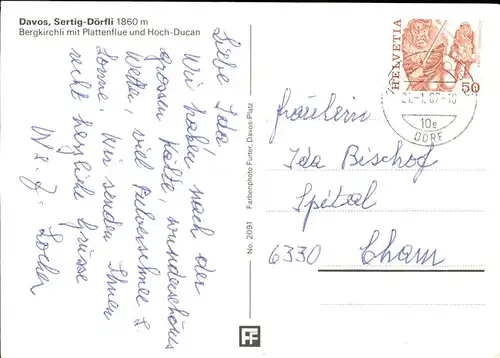 Davos, Sertig-Dörfli 1860 m
Bergkirchli mit Plattenflue und Hoch-Ducan
Liebe Ida!
Wir haben nach der
grossen Kälte, wunderschönes
Wetter, viel Pulverschnee &
Sonne. Wir senden Ihnen
recht herzliche Grüsse
W & J. Locher
No. 2091 Farbenphoto Furter, Davos-Platz
HELVETIA
50
DORF
Fräulein
Ida Bischof
Spital
6330 Cham